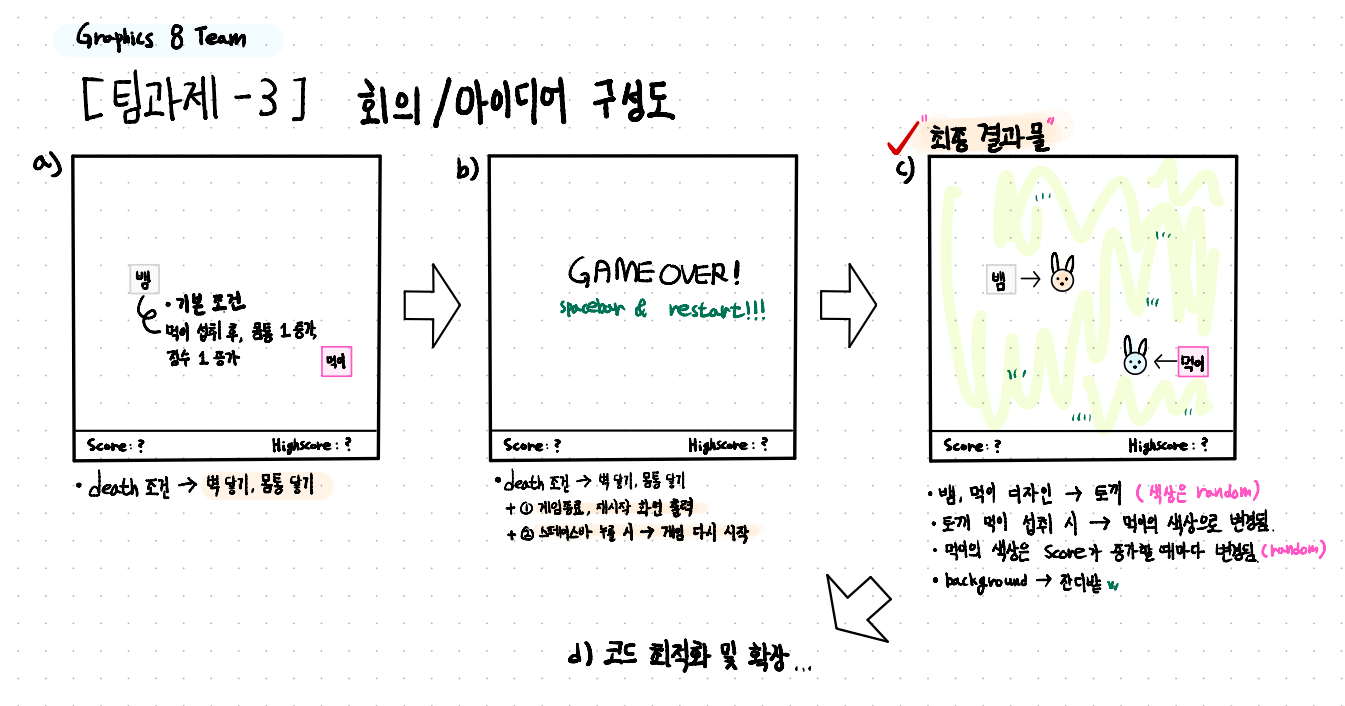 Graphics 8 Team
[팀과제 -3] 회의/아이디어 구성도
a)
뱀
• 기본 조건
먹이 섭취 후, 몸통 1 증가,
점수 1 증가
먹이
Score : ?
Highscore : ?
• death 조건 → 벽 닿기, 몸통 닿기
b)
GAME OVER!
spacebar & restart!!!
Score : ?
Highscore : ?
• death 조건 → 벽 닿기, 몸통 닿기
+ ① 게임종료, 재시작 화면 출력
+ ② 스페이스바 누를 시 → 게임 다시 시작
"최종 결과물"
c)
뱀 →
← 먹이
Score : ?
Highscore : ?
• 뱀, 먹이 디자인 → 토끼 (색상은 random)
• 토끼 먹이 섭취 시 → 먹이의 색상으로 변경됨.
• 먹이의 색상은 Score가 증가할 때마다 변경됨 (random)
• background → 잔디밭
d) 코드 최적화 및 확장...